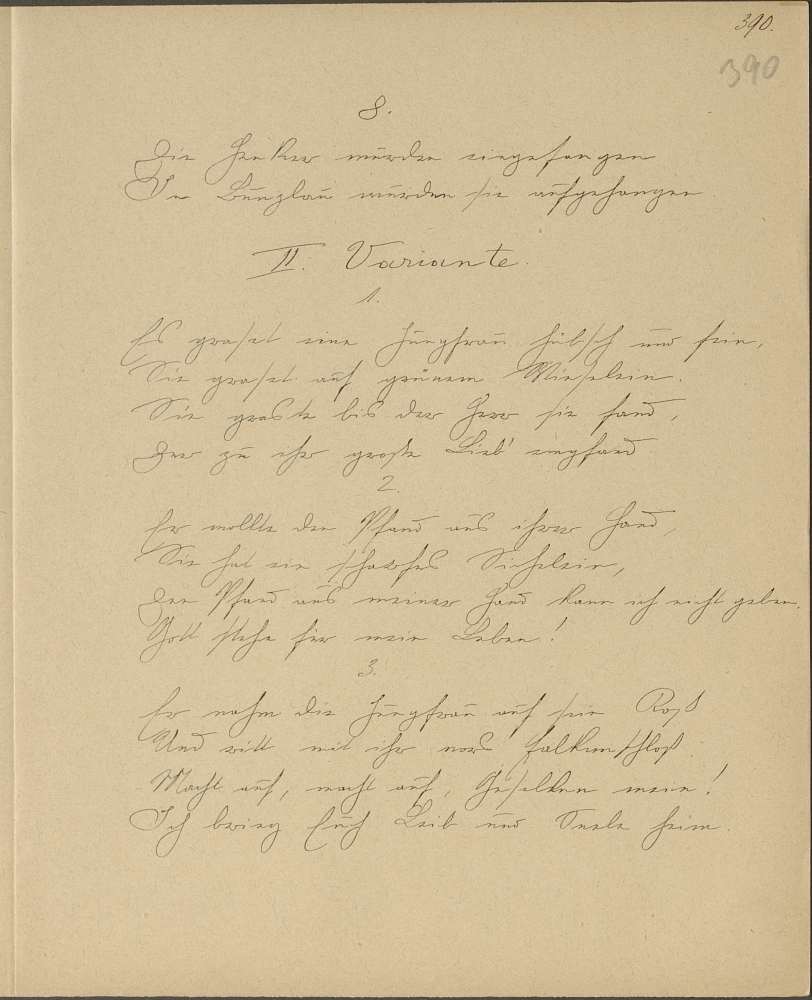 390.
390
8.
Die Henker wurden eingefangen
In Bunzlau wurden sie aufgehangen
II. Variante.
1.
Es graset eine Jungfrau hübsch und fein,
Sie graset auf grünem Wieselein.
Sie graste bis der Herr sie fand,
Der zu ihr große Lieb' empfand
2.
Er wollte den Pfand aus ihrer Hand,
Sie hat ein scharfes Sichelein,
Den Pfand aus meiner Hand kann ich nicht geben.
Gott stehe für mein Leben!
3.
Er nahm die Jungfrau auf sein Roß
Und ritt mit ihr vors Falkenschloß.
Macht auf, macht auf, Gesellen mein!
Ich bring Euch Leib und Seele heim.